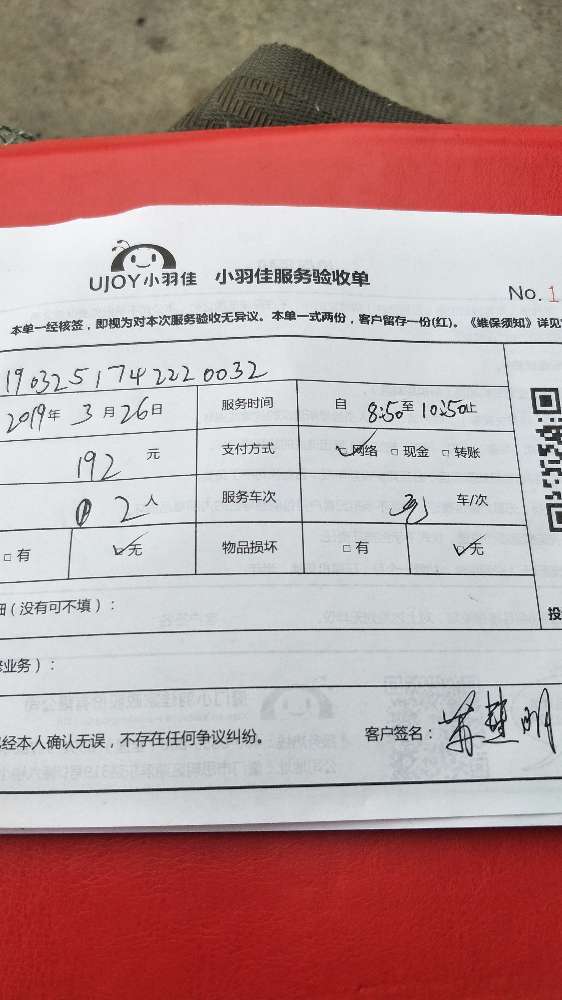 UJOY小羽佳 小羽佳服务验收单
No. 1
本单一经核签，即视为对本次服务验收无异议。本单一式两份，客户留存一份(红)。《维保须知》详见
190325174222 0032
2019年 3月26日 服务时间 自 8:50至10:50止
192 元 支付方式 网络 现金 转账
2人 服务车次 车/次
有 无 物品损坏 有 无
细（没有可不填）：
修业务）：
经本人确认无误，不存在任何争议纠纷。 客户签名：